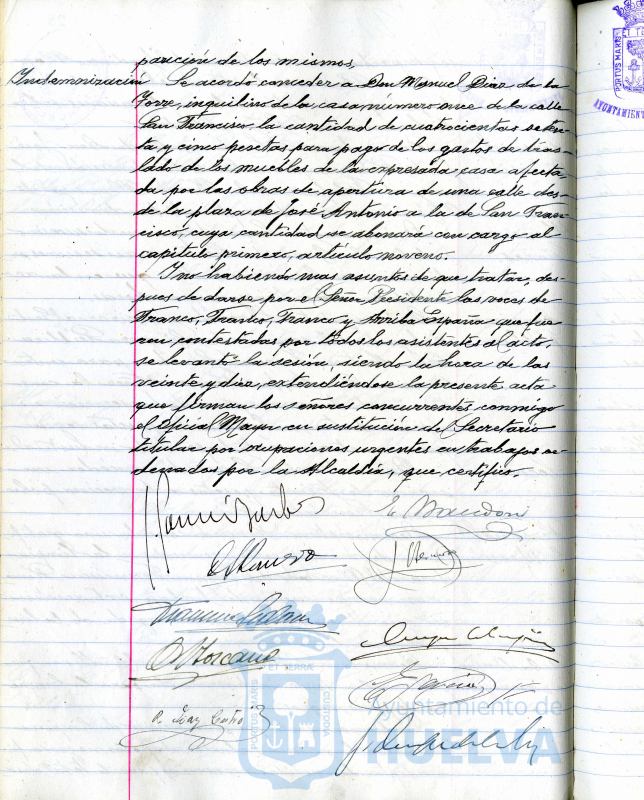 parición de los mismos.
Indemnización
Se acordó conceder a Don Manuel Diaz de la
Torre, inquilino de la casa, número once de la calle
San Francisco, la cantidad de cuatrocientas seten-
ta y cinco pesetas para pago de los gastos de tras-
lado de los muebles de la expresada casa afecta-
da por las obras de apertura de una calle des-
de la plaza de José Antonio a la de San Fran-
cisco, cuya cantidad se abonará con cargo al
capítulo primero, artículo noveno.
Y no habiendo mas asuntos de que tratar, des-
pues de darse por el Señor Presidente las voces de
Franco, Franco, Franco y Arriba España que fue-
ron contestadas por todos los asistentes al acto,
se levantó la sesión, siendo la hora de las
veinte y diez, extendiéndose la presente acta
que firman los señores concurrentes conmigo
el Oficial Mayor en sustitución del Secretario
titular por ocupaciones urgentes en trabajos or-
denados por la Alcaldía, que certifico.
PORTUS MARIS
ET TERRÆ
CUSTODIA
Ayuntamiento de
HUELVA
PORTUS MARIS
AYUNTAMIENT